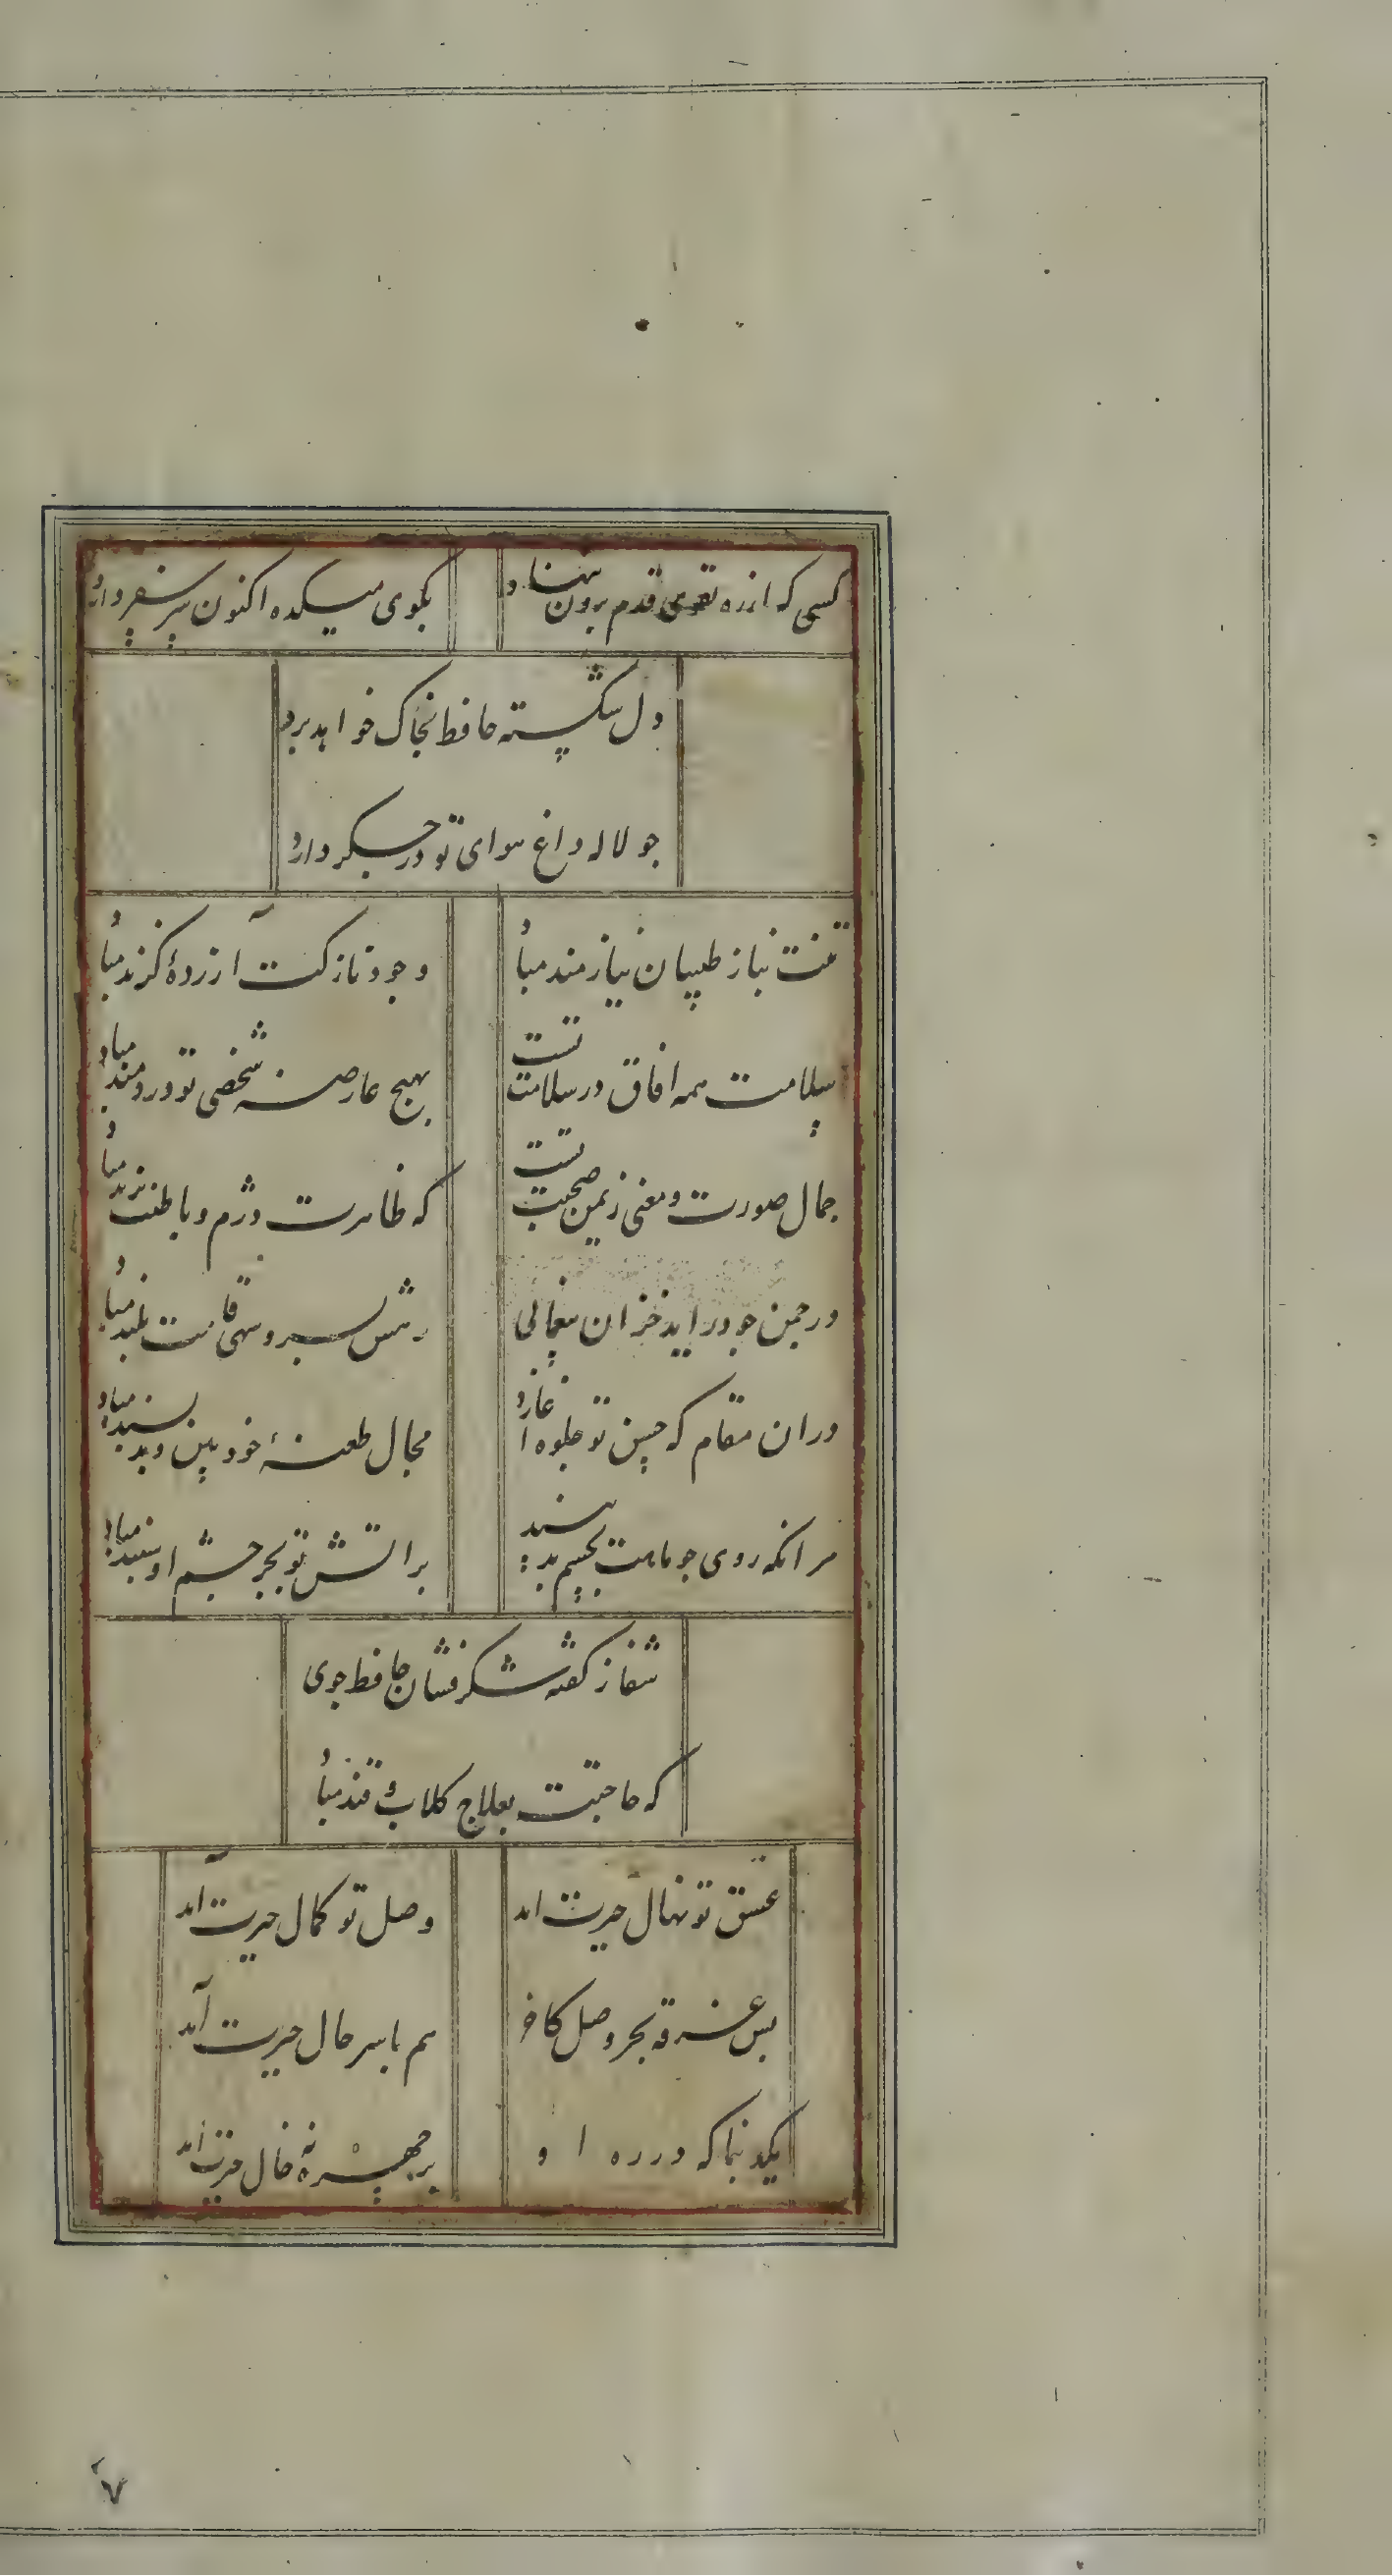 کسی که از ره تقوی قدم برون ننهاد
بکوی میکده اکنون سر سفر دارد
دل شکسته حافظ بخاک خواهد برد
جو لاله داغ هوای تو در جکر دارد
تنت بناز طبیبان نیازمند مباد
وجود نازکت آزرده کزند مباد
سلامت همه افاق در سلامت تست
بهیچ عارضه شخص تو دردمند مباد
جمال صورت و معنی ز یمن صحبت تست
که ظاهرت دژم و باطنت نژند مباد
در جمن جو دراید خزان یغمایی
رهش بسرو سهی قامت بلند مباد
دران مقام که حسن تو جلوه اغازد
مجال طعنه خودبین و بدپسند مباد
هر انکه روی جو ماهت بجسم بد بیند
بر اتش تو بجز جشم او سپند مباد
شفا ز کفته شکرفشان حافظ جوی
که حاجتت بعلاج کلاب و قند مباد
عشق تو نهال حیرت امد
وصل تو کمال حیرت آمد
بس غرقه بحر وصل کاخر
هم با سر حال حیرت آمد
یکدل بنما که در ره او
بر جهره نه خال حیرت امد
۷